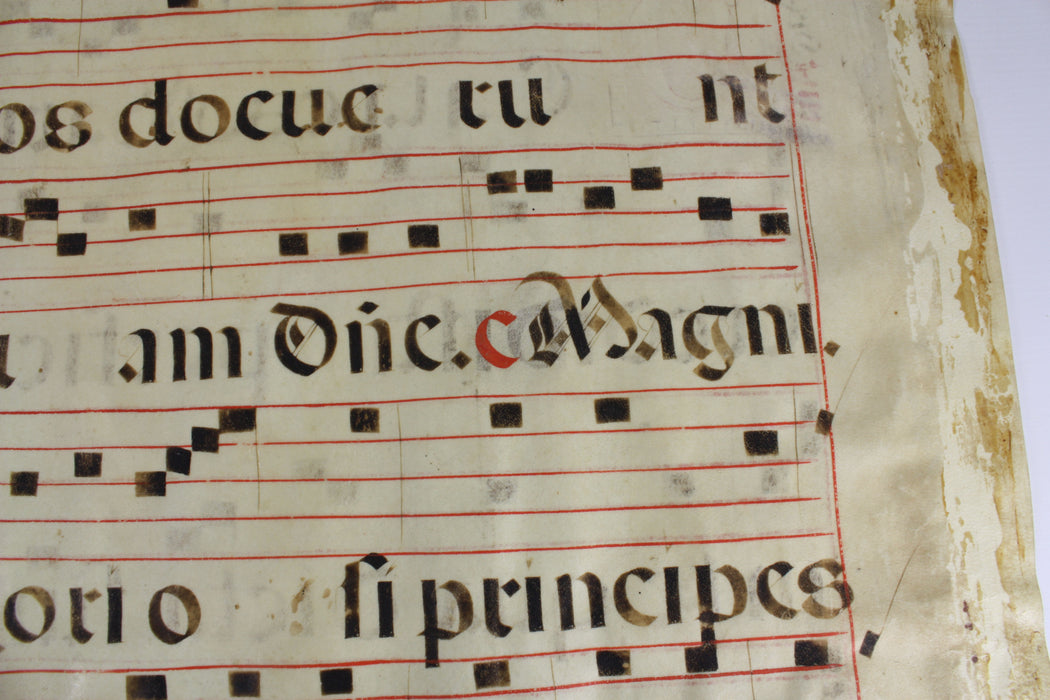 os docue ru nt
am Dñe. c Magni.
orio si principes